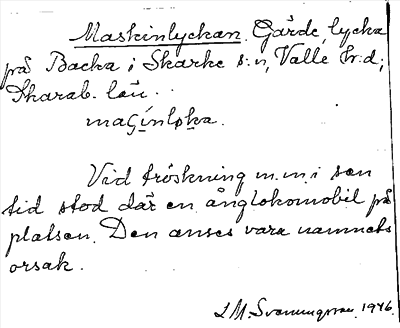 Maskinlyckan. Gärde, lycka
på Backa i Skärke s:n, Valle h:d;
Skarab. län.
maʃínløka.
Vid tröskning m.m. i sen
tid stod där en ånglokomobil på
platsen. Den anses vara namnets
orsak.
L.M. Svanungsson, 1946.